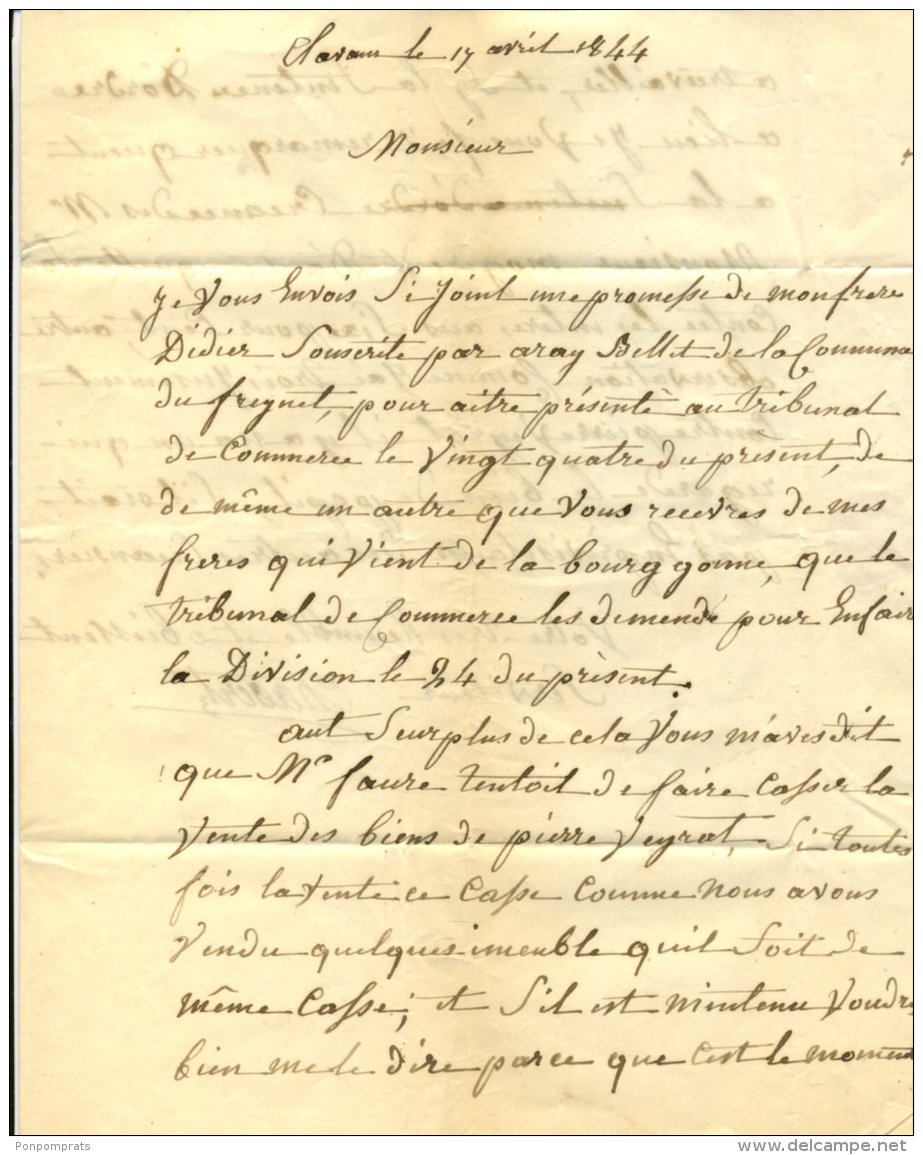 Clavans le 17 avril 1844
Monsieur
Je Vous Envois Si Joint une promesse de mon frere
Didier Souscrite par aray Bellet de la Commune
du freynet, pour aitre présenté au tribunal
de Commerce le Vingt quatre du présent, de
de même un autre que Vous recevres de mes
freres qui Vient de la bourggonne, que le
tribunal de Commerce les demende pour Enfair
la Division le 24 du présent.
aut Seurplus de cela Vous m'aves dit
que Mr faure tentoit de faire Casser la
Vente des biens de pierre Veyrat, Si toutes
fois la Vente ce Casse Comme nous avons
Vendu quelques imeuble quil Soit de
même Casse; et S'il est mintenu Voudr
bien me le dire parce que c'est le moment
Ponpomprats
www.delcampe.net